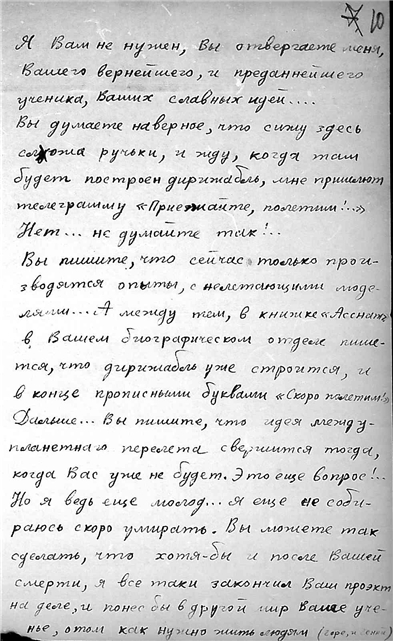 10
Я Вам не нужен, Вы отвергаете меня,
Вашего вернейшего, и преданнейшего
ученика, Ваших славных идей....
Вы думаете наверное, что сижу здесь
сложа ручьки, и жду, когда там
будет построен дирижабль, мне пришлют
телеграмму «Приезжайте, полетим!..»
Нет... не думайте так!..
Вы пишите, что сейчас только прои-
зводятся опыты, с нелетающими моде-
лями... А между тем, в книжке «Асснат»
в Вашем биографическом отделе пише-
тся, что дирижабль уже строится, и
в конце прописными буквами «Скоро полетим!»
Дальше... Вы пишите, что идея между-
планетного перелета свершится тогда,
когда Вас уже не будет. Это еще вопрос!..
Но я ведь еще молод... я еще не соби-
раюсь скоро умирать. Вы можете так
сделать, что хотя-бы и после Вашей
смерти, я все таки закончил Ваш проэкт
на деле, и понес бы в другой мир Ваше уче-
нье, о том как нужно жить людям